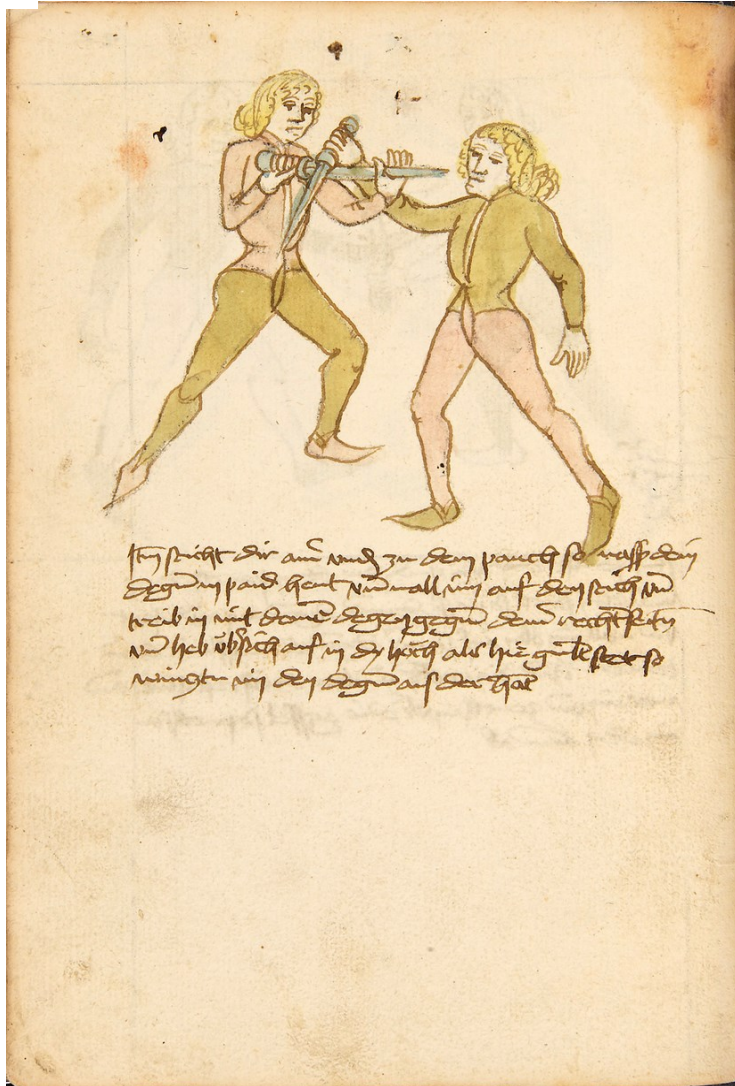 Itm̃ sticht dir ain̄ vndñ zu dem pauch so wasff dein
degen̄ in paid hent vn̄ vall im auf den stich vn̄
treib in mit deinē degen̄ gegen̄ dein̄ recht̄ seitn̄
vn̄ heb vb̃sich auf in dy höch als hie gemolt stet so
windstu im den degen̄ aus der hāt